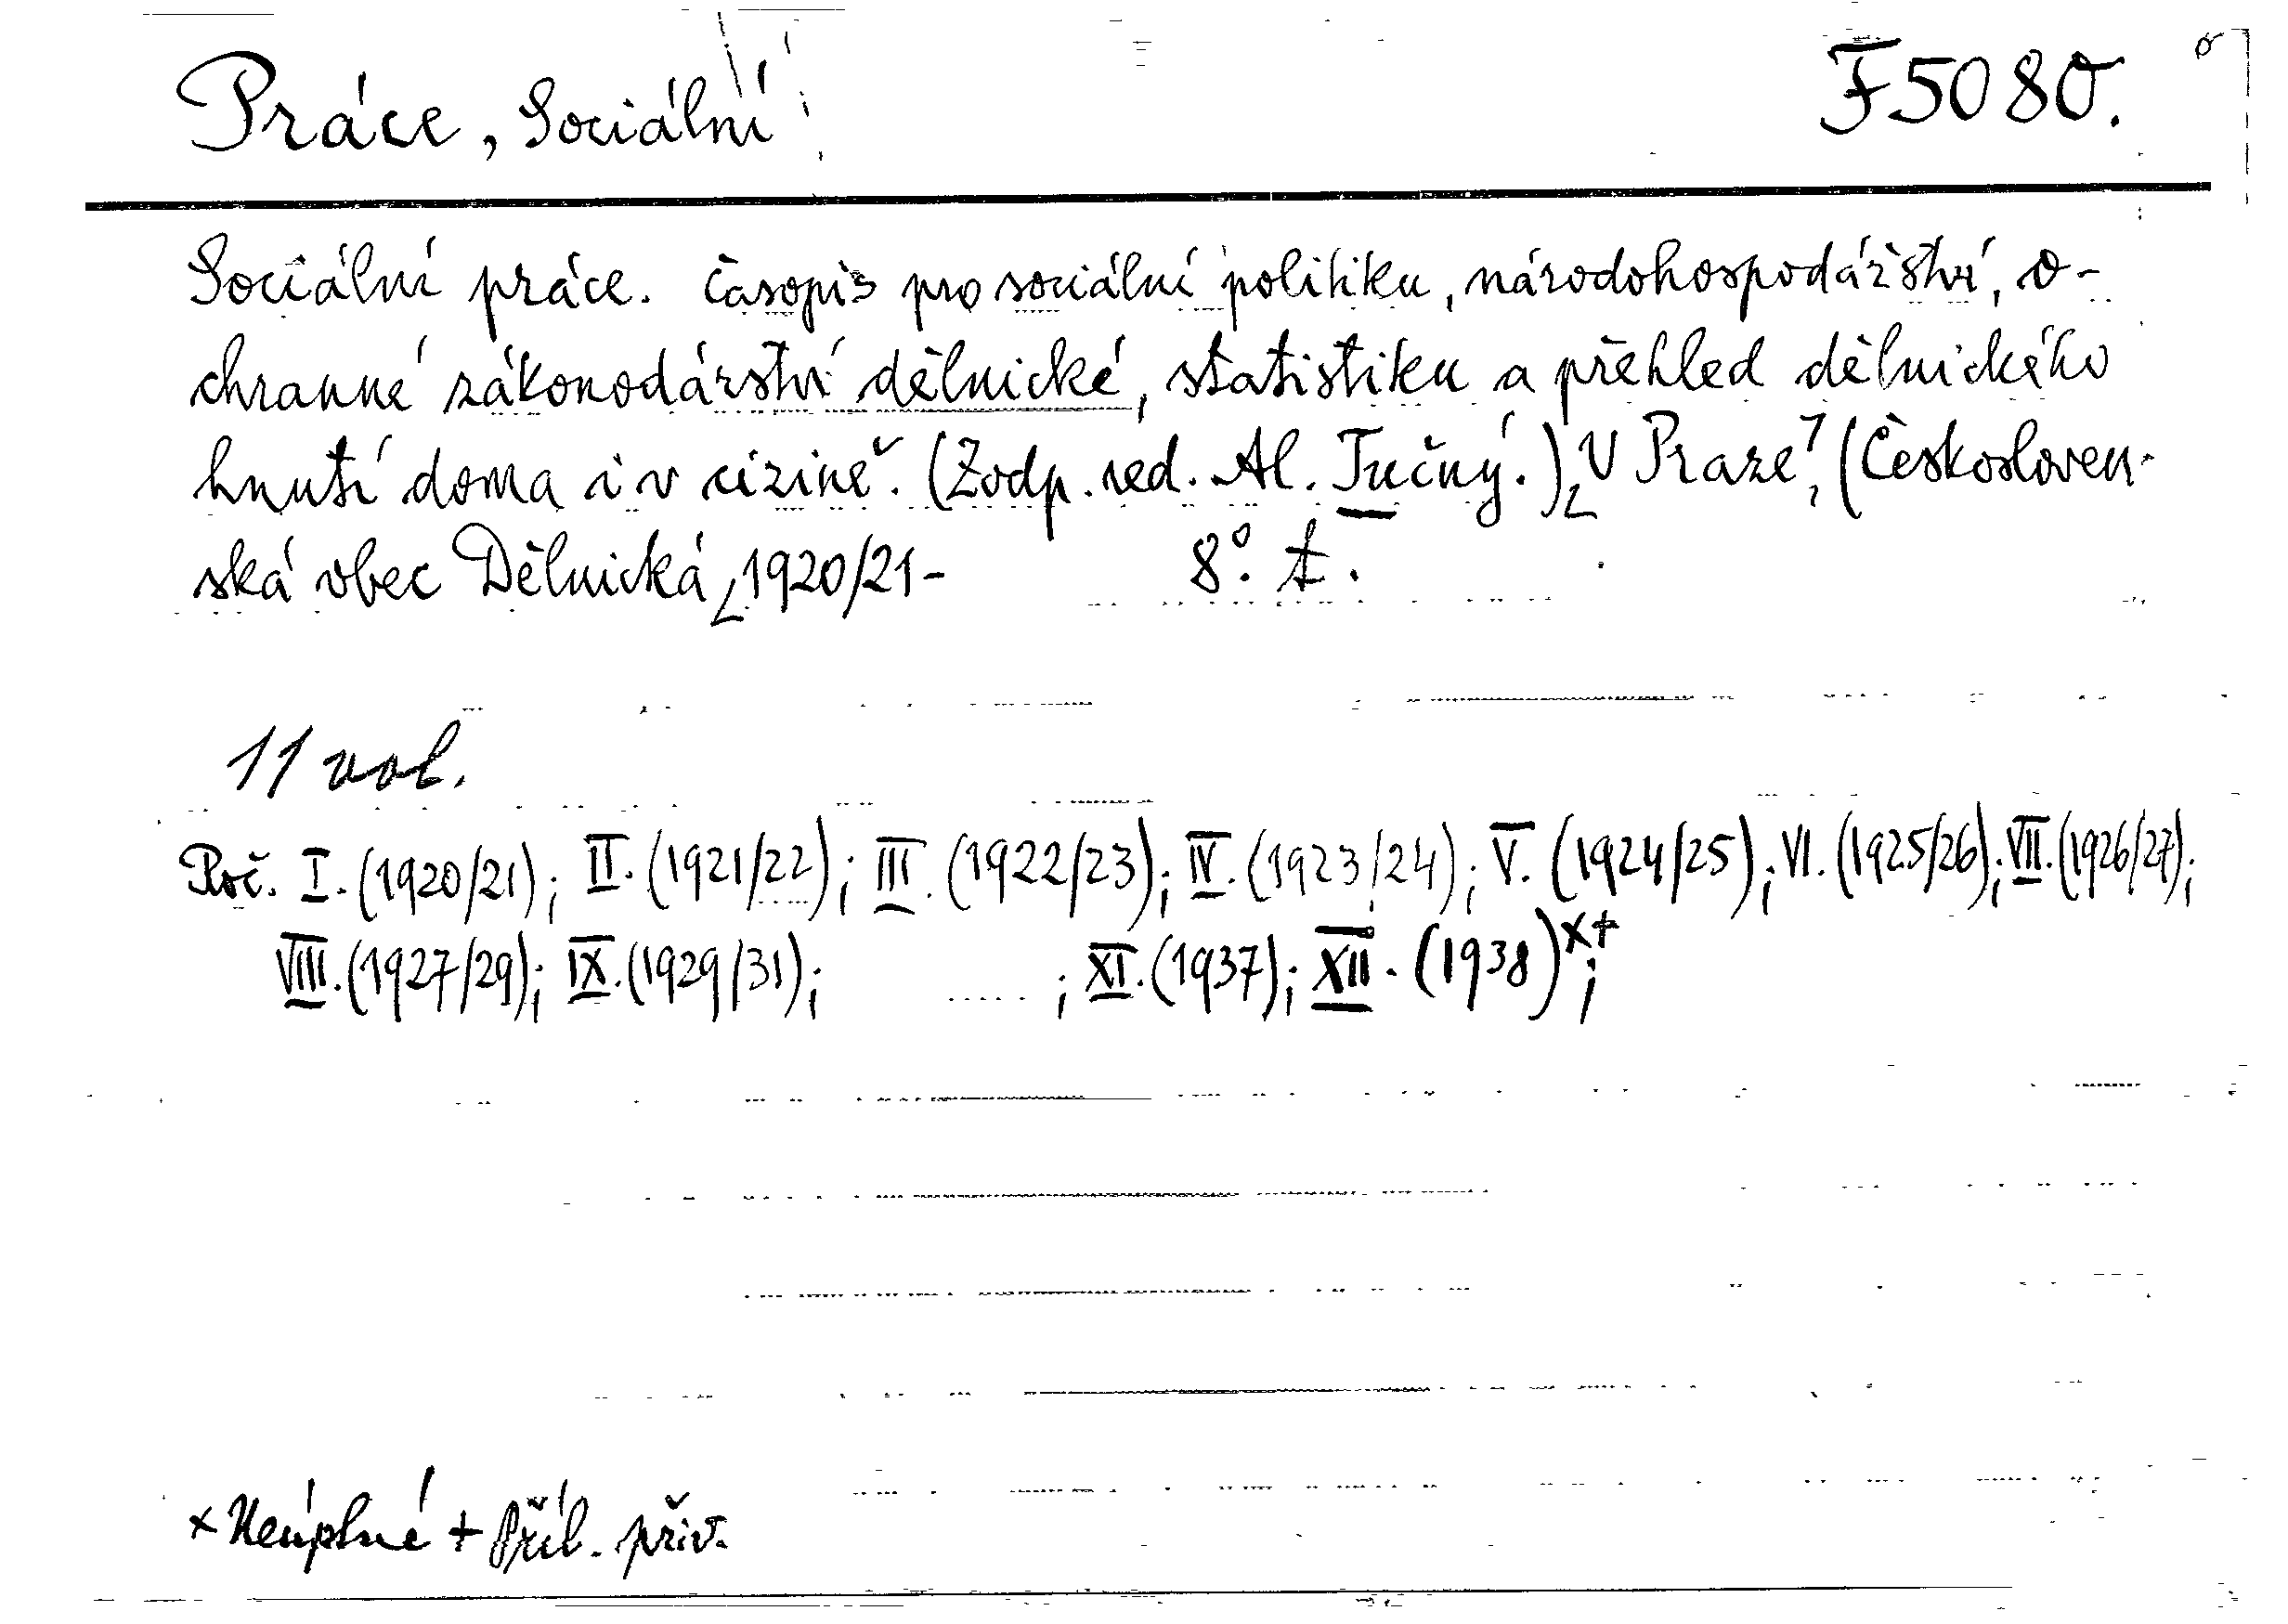 Práce, Sociální
F 5080.
Sociální práce. Časopis pro sociální politiku, národohospodářství, o-
chranné zákonodárství dělnické, statistiku a přehled dělnického
hnutí doma i v cizině. (Zodp. red. Al. Tučný.) V Praze, (Českosloven-
ská obec Dělnická 1920/21- 8°. t.
11 vol.
Roč. I. (1920/21); II. (1921/22); III. (1922/23); IV. (1923/24); V. (1924/25); VI. (1925/26); VII. (1926/27);
VIII. (1927/29); IX. (1929/31); ; XI. (1937); XII. (1938)x+;
x Neúplné + Příl. přiv.